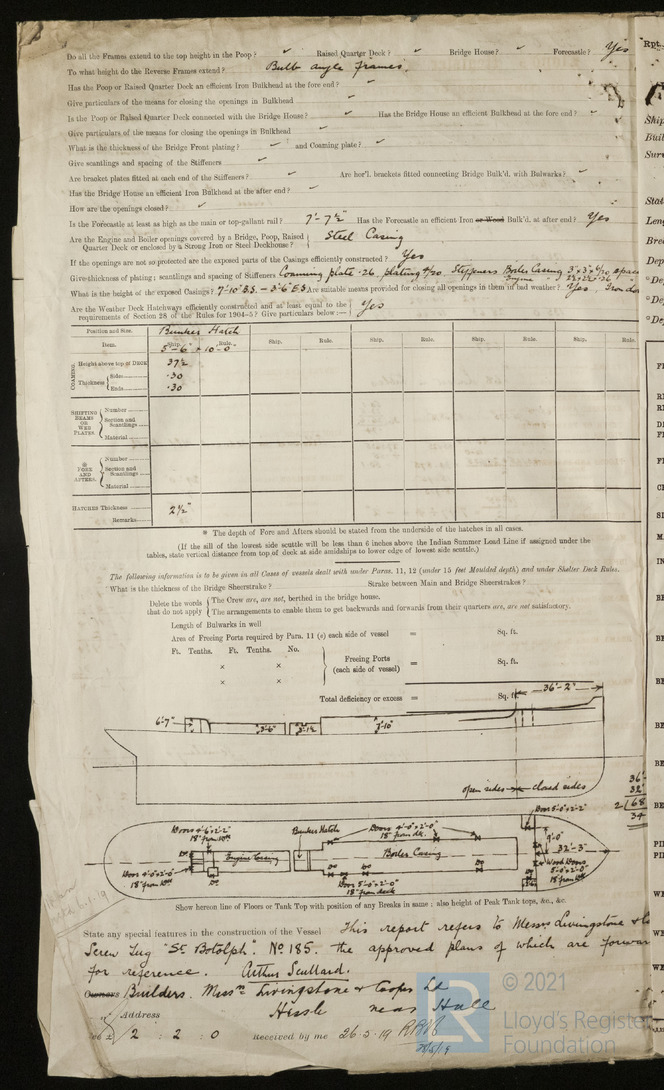 Do all the Frames extend to the top height in the Poop? ✓ Raised Quarter Deck? ✓ Bridge House? ✓ Forecastle? Yes
To what height do the Reverse Frames extend? Bulb angle frames.
Has the Poop or Raised Quarter Deck an efficient Iron Bulkhead at the fore end? ✓
Give particulars of the means for closing the openings in Bulkhead ✓
Is the Poop or Raised Quarter Deck connected with the Bridge House? ✓ Has the Bridge House an efficient Bulkhead at the fore end? ✓
Give particulars of the means for closing the openings in Bulkhead ✓
What is the thickness of the Bridge Front plating? ✓ and Coaming plate? ✓
Give scantlings and spacing of the Stiffeners ✓
Are bracket plates fitted at each end of the Stiffeners? ✓ Are hor'l. brackets fitted connecting Bridge Bulk'd. with Bulwarks? ✓
Has the Bridge House an efficient Iron Bulkhead at the after end? ✓
How are the openings closed? ✓
Is the Forecastle at least as high as the main or top-gallant rail? 7'-7½" Has the Forecastle an efficient Iron or Wood Bulk'd. at after end? Yes
Are the Engine and Boiler openings covered by a Bridge, Poop, Raised Quarter Deck or enclosed by a Strong Iron or Steel Deckhouse? Steel Casing
If the openings are not so protected are the exposed parts of the Casings efficiently constructed? Yes
Give thickness of plating; scantlings and spacing of Stiffeners Coaming plate .26. plating Stiffeners Boiler Casing
Engine
What is the height of the exposed Casings? 7'-10" B.S. - 3'-6" E.S. Are suitable means provided for closing all openings in them in bad weather? Yes. Iron
Are the Weather Deck Hatchways efficiently constructed and at least equal to the requirements of Section 28 of the Rules for 1904-5? Give particulars below:— Yes
Position and Size. Bunker Hatch
5'-6" × 10'-0"
Item. Ship. Rule. Ship. Rule. Ship. Rule. Ship. Rule. Ship. Rule.
COAMING Height above top of DECK 37½
Thickness Sides .30
Ends .30
SHIFTING BEAMS OR WEB PLATES. Number
Section and Scantlings
Material
* FORE AND AFTERS. Number
Section and Scantlings
Material
HATCHES Thickness 2½"
Remarks
* The depth of Fore and Afters should be stated from the underside of the hatches in all cases.
(If the sill of the lowest side scuttle will be less than 6 inches above the Indian Summer Load Line if assigned under the
tables, state vertical distance from top of deck at side amidships to lower edge of lowest side scuttle.)
The following information is to be given in all Cases of vessels dealt with under Paras. 11, 12 (under 15 feet Moulded depth) and under Shelter Deck Rules.
What is the thickness of the Bridge Sheerstrake? Strake between Main and Bridge Sheerstrakes?
Delete the words that do not apply The Crew are, are not, berthed in the bridge house.
The arrangements to enable them to get backwards and forwards from their quarters are, are not satisfactory.
Length of Bulwarks in well
Area of Freeing Ports required by Para. 11 (e) each side of vessel = Sq. ft.
Ft. Tenths. Ft. Tenths. No.
×  ×
×  ×
×  ×
Freeing Ports (each side of vessel) = Sq. ft.
Total deficiency or excess = Sq. ft.
36'-2"
6'-7" 3'-6" 3'-1½ 7'-10"
open sides closed sides
36'
32'
2 68
34
Doors 4'-6"×2'-2"
Bunker Hatch
Doors 4'-0"×2'-0"
18" from dk.
Doors 5'-0"×2'-2"
9'-0"
Engine Casing
Boiler Casing
32'-3"
Doors 4'-0"×2'-0"
Doors 5'-0"×2'-0"
18" from deck
Wood Doors
5'-0"×2'-0"
Show hereon line of Floors or Tank Top with position of any Breaks in same; also height of Peak Tank tops, &c., &c.
State any special features in the construction of the Vessel This report refers to Messrs Livingstone &
Screw Tug "St Botolph". No 185. the approved plans of which are
for reference. Arthur Scullard.
Owners Builders. Messrs Livingstone & Cooper Ld
Address Hessle near Hull
Fee £ 2 : 2 : 0 Received by me 26-5-19
© 2021
Lloyd's Register
Foundation
Rpt.